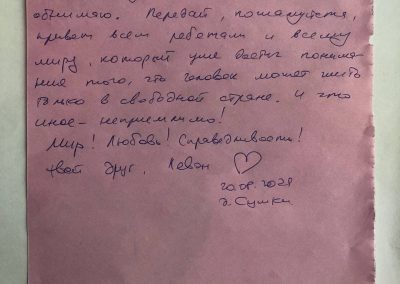 обнимаю. Передай, пожалуйста,
привет всем ребятам и всему
миру, который уже достиг понима-
ния того, что человек может жить
только в свободной стране. И что
иное - неприемлимо!
Мир! Любовь! Справедливость!
твой друг, Леван
20.08.2021
д. Сушки